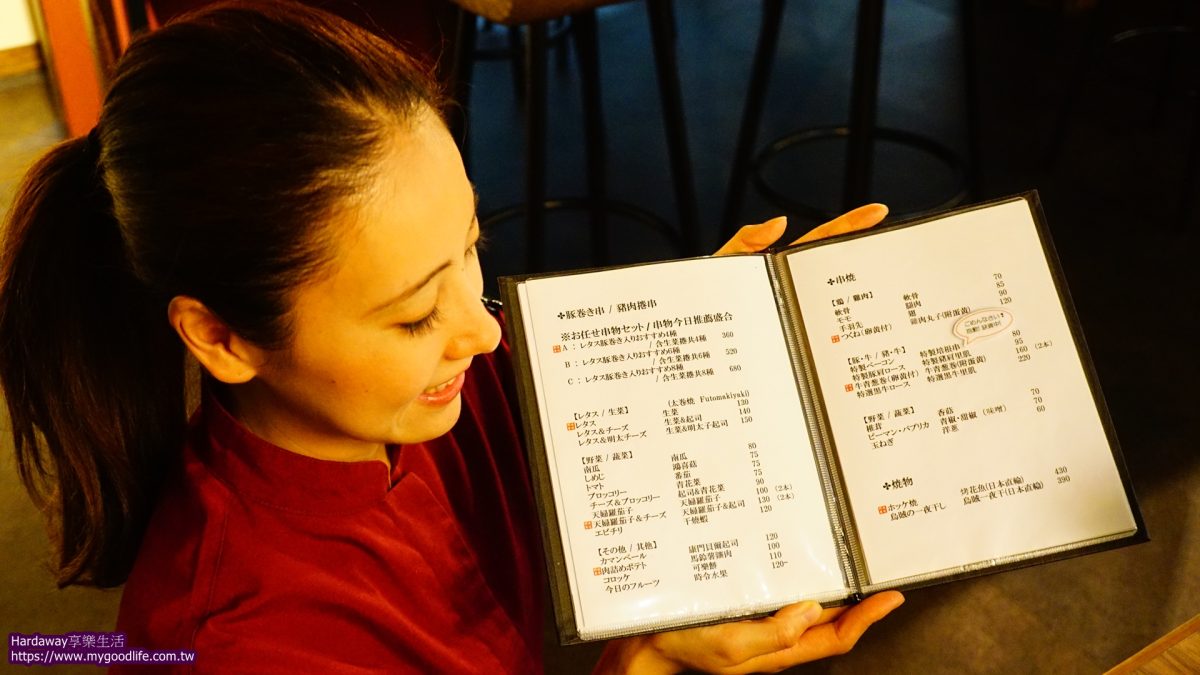 ✤豚巻き串 / 豬肉捲串
※お任せ串物セット / 串物今日推薦盛合
A：レタス豚巻き入りおすすめ4種
/ 含生菜捲共4種 360
B：レタス豚巻き入りおすすめ6種
/ 含生菜捲共6種 520
C：レタス豚巻き入りおすすめ8種
/ 含生菜捲共8種 680
【レタス / 生菜】 (太巻燒 Futomakiyaki)
レタス 生菜 130
レタス&チーズ 生菜&起司 140
レタス&明太チーズ 生菜&明太子起司 150
【野菜 / 蔬菜】
南瓜 南瓜 80
しめじ 鴻喜菇 75
トマト 番茄 75
ブロッコリー 青花菜 75
チーズ&ブロッコリー 起司&青花菜 90
天婦羅茄子 天婦羅茄子 100 (2本)
天婦羅茄子&チーズ 天婦羅茄子&起司 130 (2本)
エビチリ 干燒蝦 120
【その他 / 其他】
カマンベール 康門貝爾起司 120
肉詰めポテト 馬鈴薯鑲肉 100
コロッケ 可樂餅 110
今日のフルーツ 時令水果 120~
✤串燒
【鶏 / 雞肉】
軟骨 軟骨 70
モモ 腿肉 85
手羽先 翅 90
つくね(卵黄付) 雞肉丸子(附蛋黄) 120
ごめんなさい!
【豚・牛 / 豬・牛】
特製ベーコン 特製培根串 80
特製豚肩ロース 特製豬肩里肌 95
牛青葱巻(卵黄付) 牛青葱巻(附蛋黄) 160 (2本)
特選黒牛ロース 特選黑牛里肌 220
【野菜 / 蔬菜】
椎茸 香菇 70
ピーマン・パプリカ 青椒・甜椒 (味噌) 70
玉ねぎ 洋蔥 60
✤燒物
ホッケ燒 烤花魚(日本直輸) 430
烏賊の一夜干し 烏賊一夜干(日本直輸) 390
Hardaway享樂生活
https://www.mygoodlife.com.tw